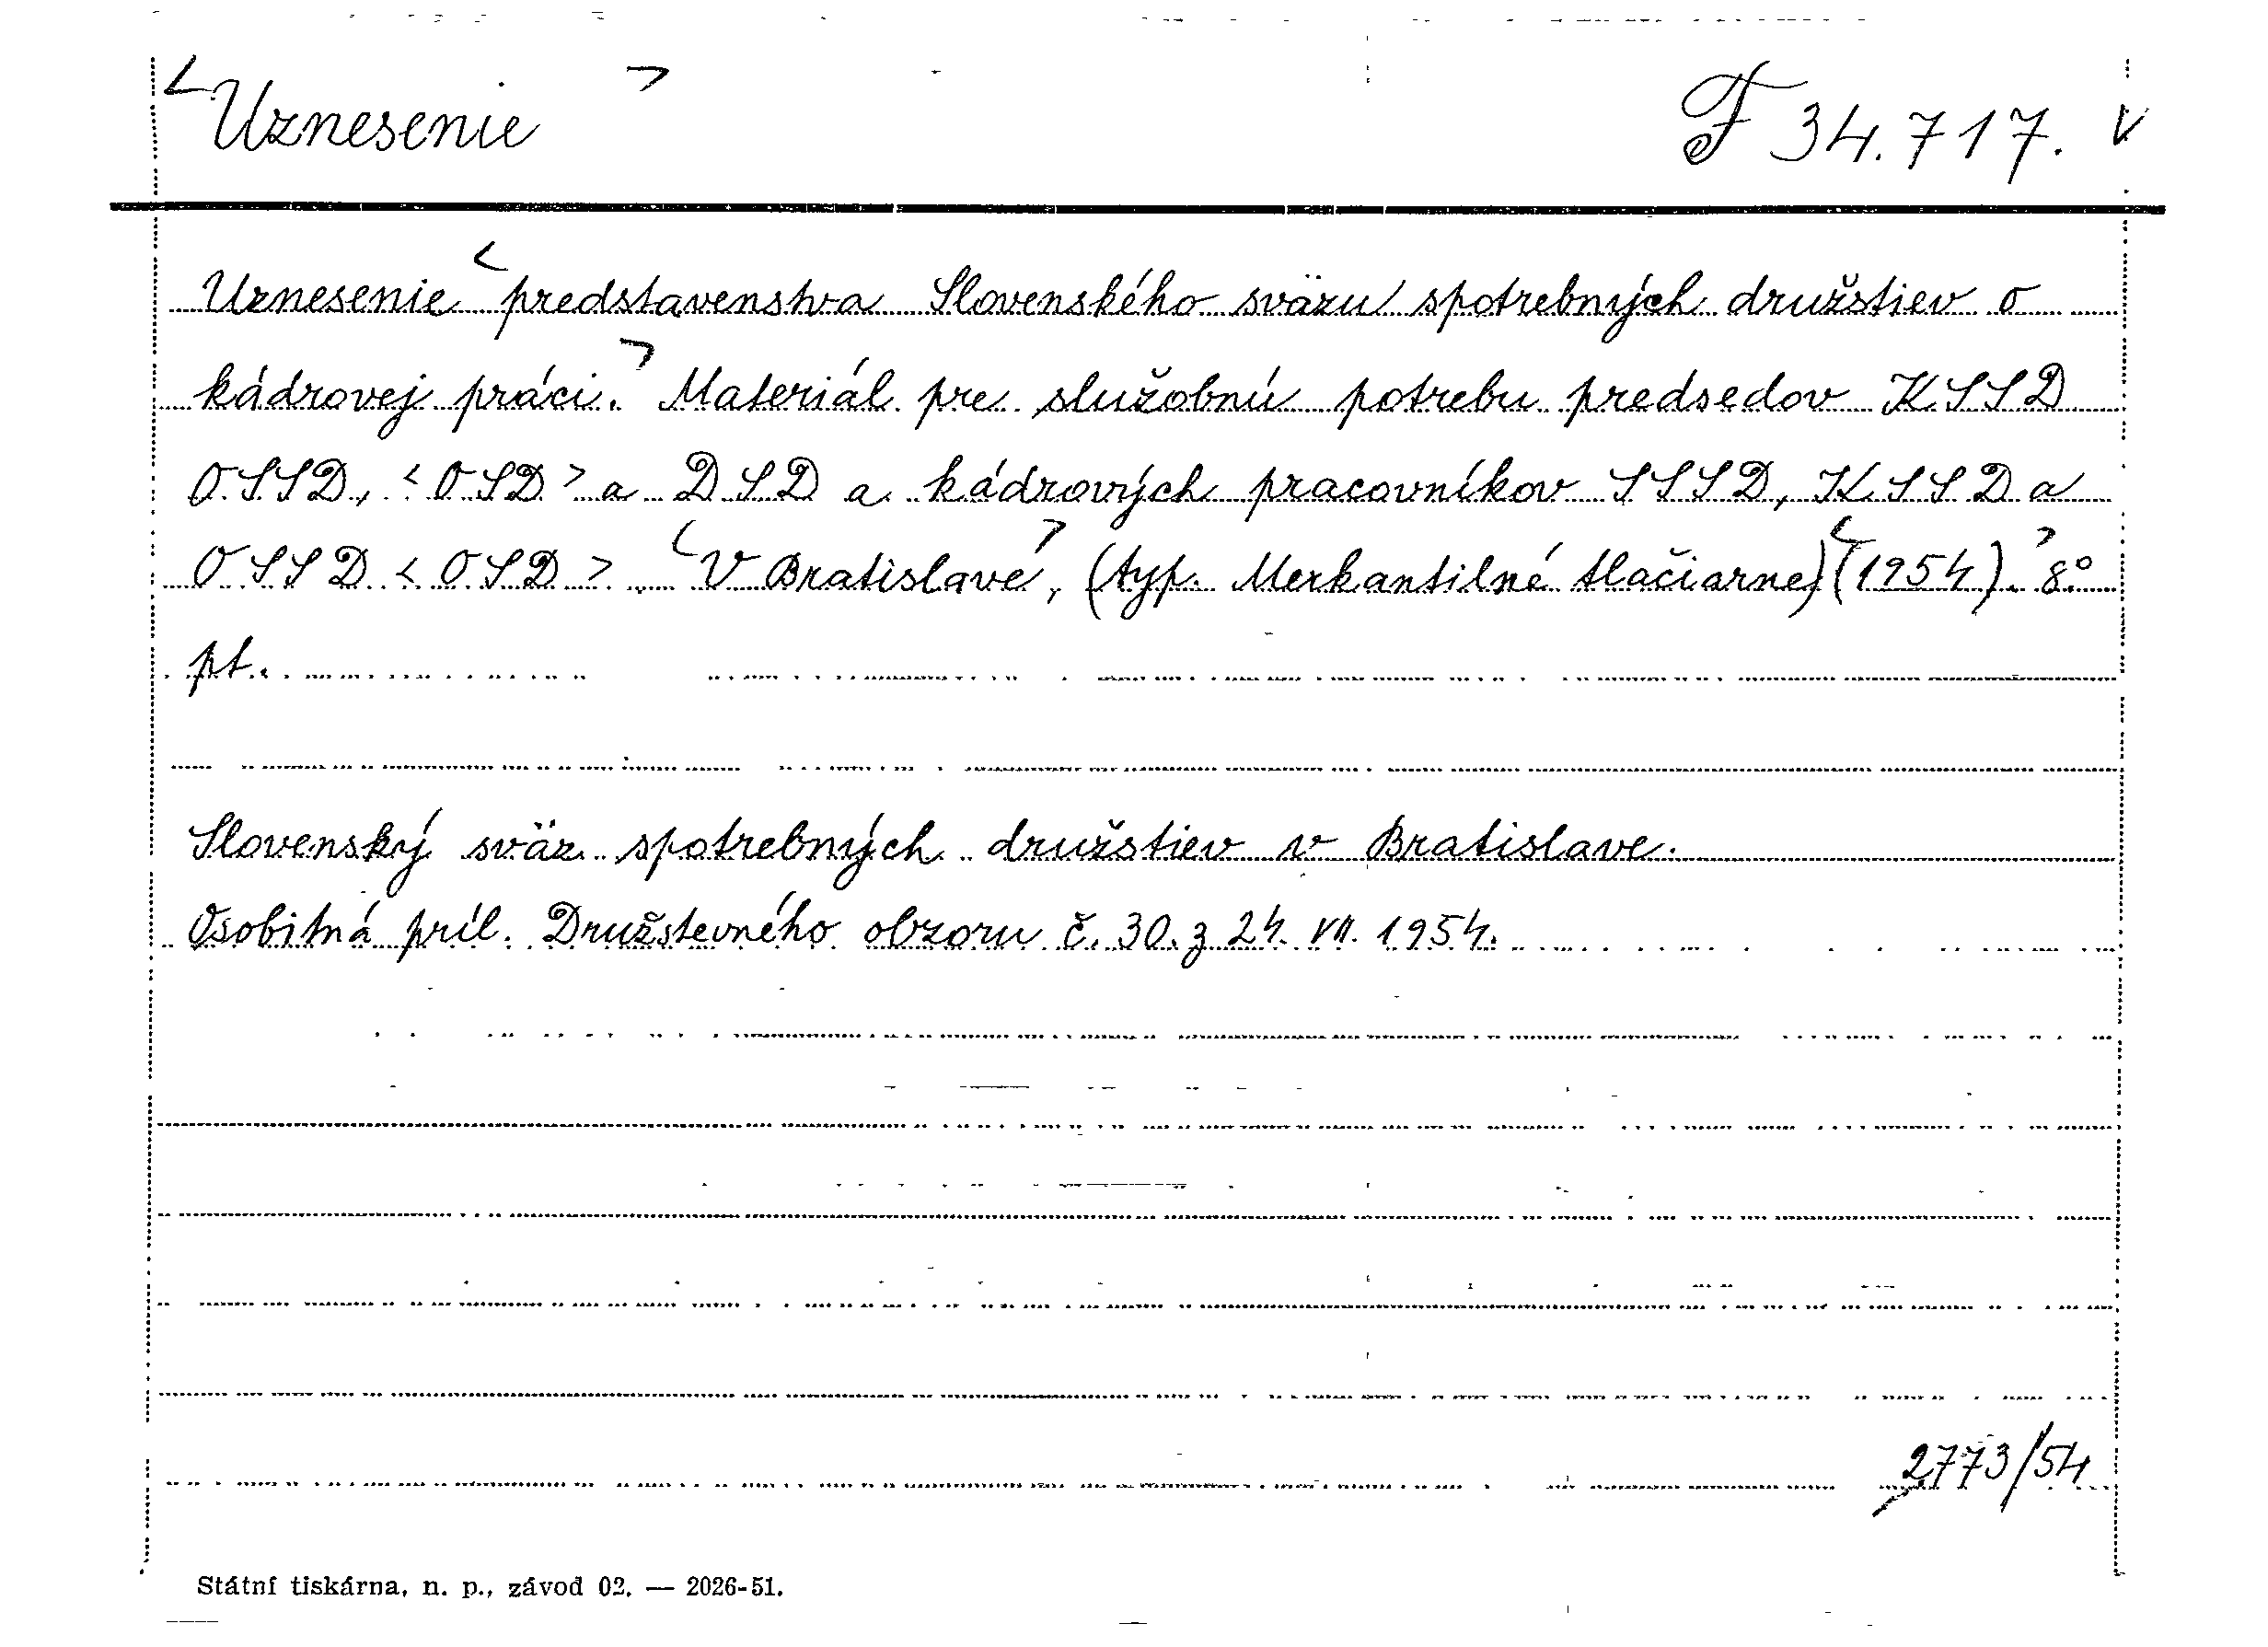 <Uznesenie> F 34.717. V
Uznesenie <predstavenstva Slovenského sväzu spotrebných družstiev o
kádrovej práci.> Materiál pre služobnú potrebu predsedov KSSD
OSSD, <OSD> a DSD a kádrových pracovníkov SSSD, KSSD a
OSSD <OSD>. <V Bratislave>, (typ. Merkantilné tlačiarne) <(1954).> 8°.
pt.
Slovenský sväz spotrebných družstiev v Bratislave.
Osobitná príl. Družstevného obzoru č. 30. z 24. VII. 1954.
2773/54
Státní tiskárna, n. p., závod 02. — 2026-51.